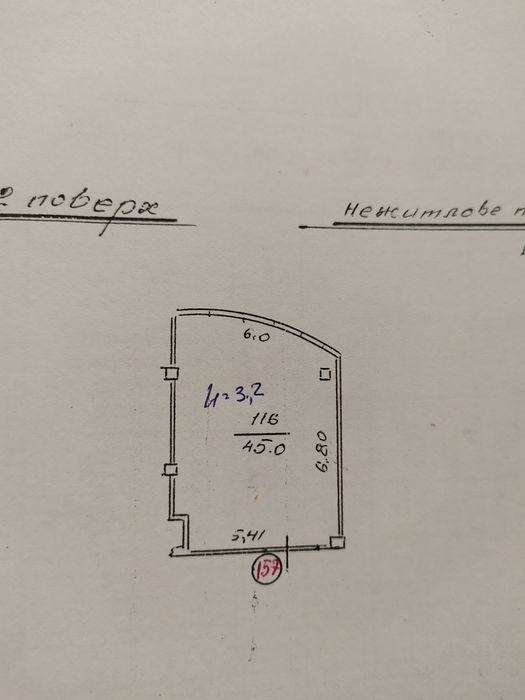 2 поверх
Нежитлове п
6.0
h=3,2
116
45.0
6.80
5,41
157